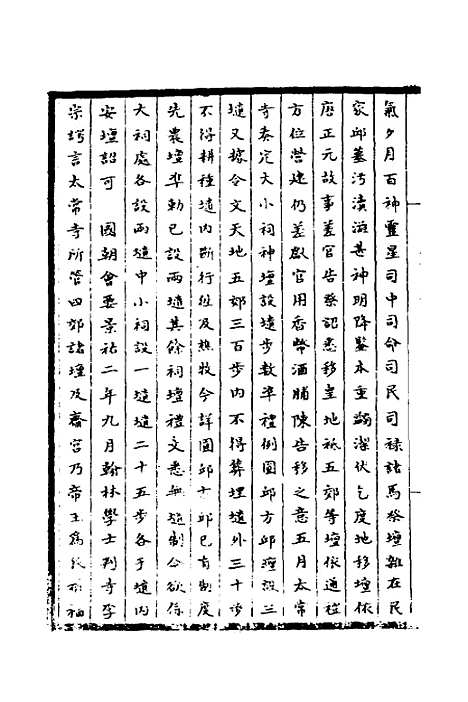 氣夕月百神靈星司中司命司民司祿諸馬祭壇雜在民
家邱墓污瀆滋甚神明降鑒本重蠲潔伏乞度地移壇依
唐正元故事差官告祭記悉移皇地祗五郊等壇依通禮
方位營建仍差獻官用香幣酒脯陳告移之意五月太常
寺奏定大小祠神壇設壝步數準禮例圜邱方邱壇設三
壝又據令文天地五郊三百步內不得葬埋壝外三十步
不得耕種壝內斷行徑及熱牧今詳圜邱方邱已有制度
先農壇準勅已設兩壝其餘祠壇禮文悉無壝制今欲係
大祠處各設兩壝中小祠設一壝壝二十五步各于壝內
安壇詔可　國朝會要景祐二年九月翰林學士判寺李
宗諤言太常寺所管四郊諸壇及齋宮乃帝王為民祈福